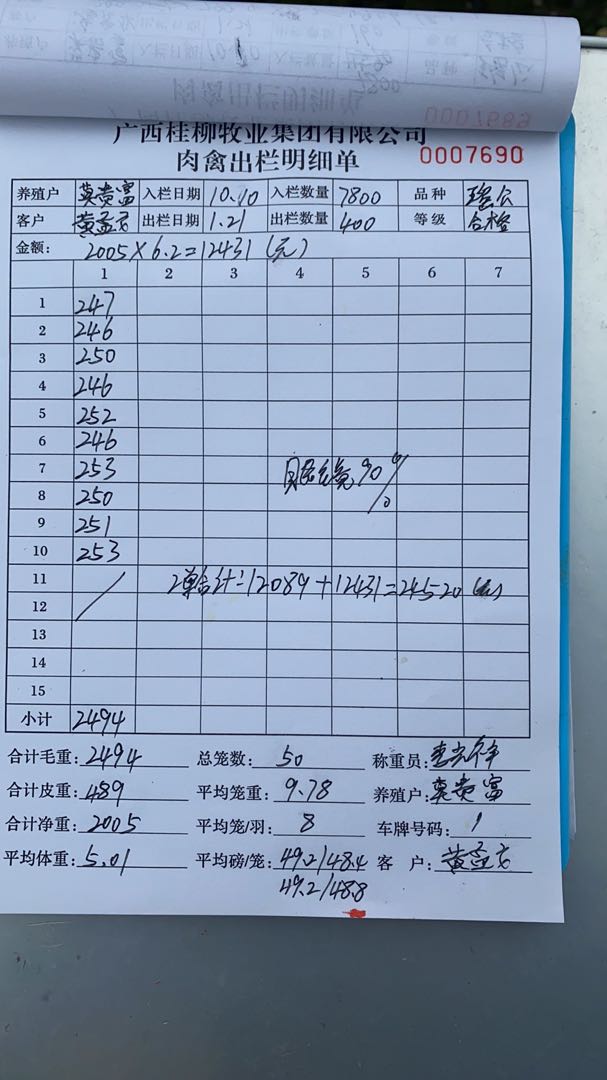 0007689
广西桂柳牧业集团有限公司
肉禽出栏明细单 0007690
养殖户 莫贵富 入栏日期 10.10 入栏数量 7800 品种 瑶公
客户 黄孟方 出栏日期 1.21 出栏数量 400 等级 合格
金额: 2005×6.2=12431(元)
1 2 3 4 5 6 7
1 247
2 246
3 250
4 246
5 252
6 246
7 253 90%
8 250
9 251
10 253
11 2单合计:12089+12431=24520(元)
12
13
14
15
小计 2494
合计毛重: 2494 总笼数: 50 称重员:
合计皮重: 489 平均笼重: 9.78 养殖户: 莫贵富
合计净重: 2005 平均笼/羽: 8 车牌号码: 1
平均体重: 5.01 平均磅/笼: 49.2/48.4 客户: 黄孟方
49.2/48.8